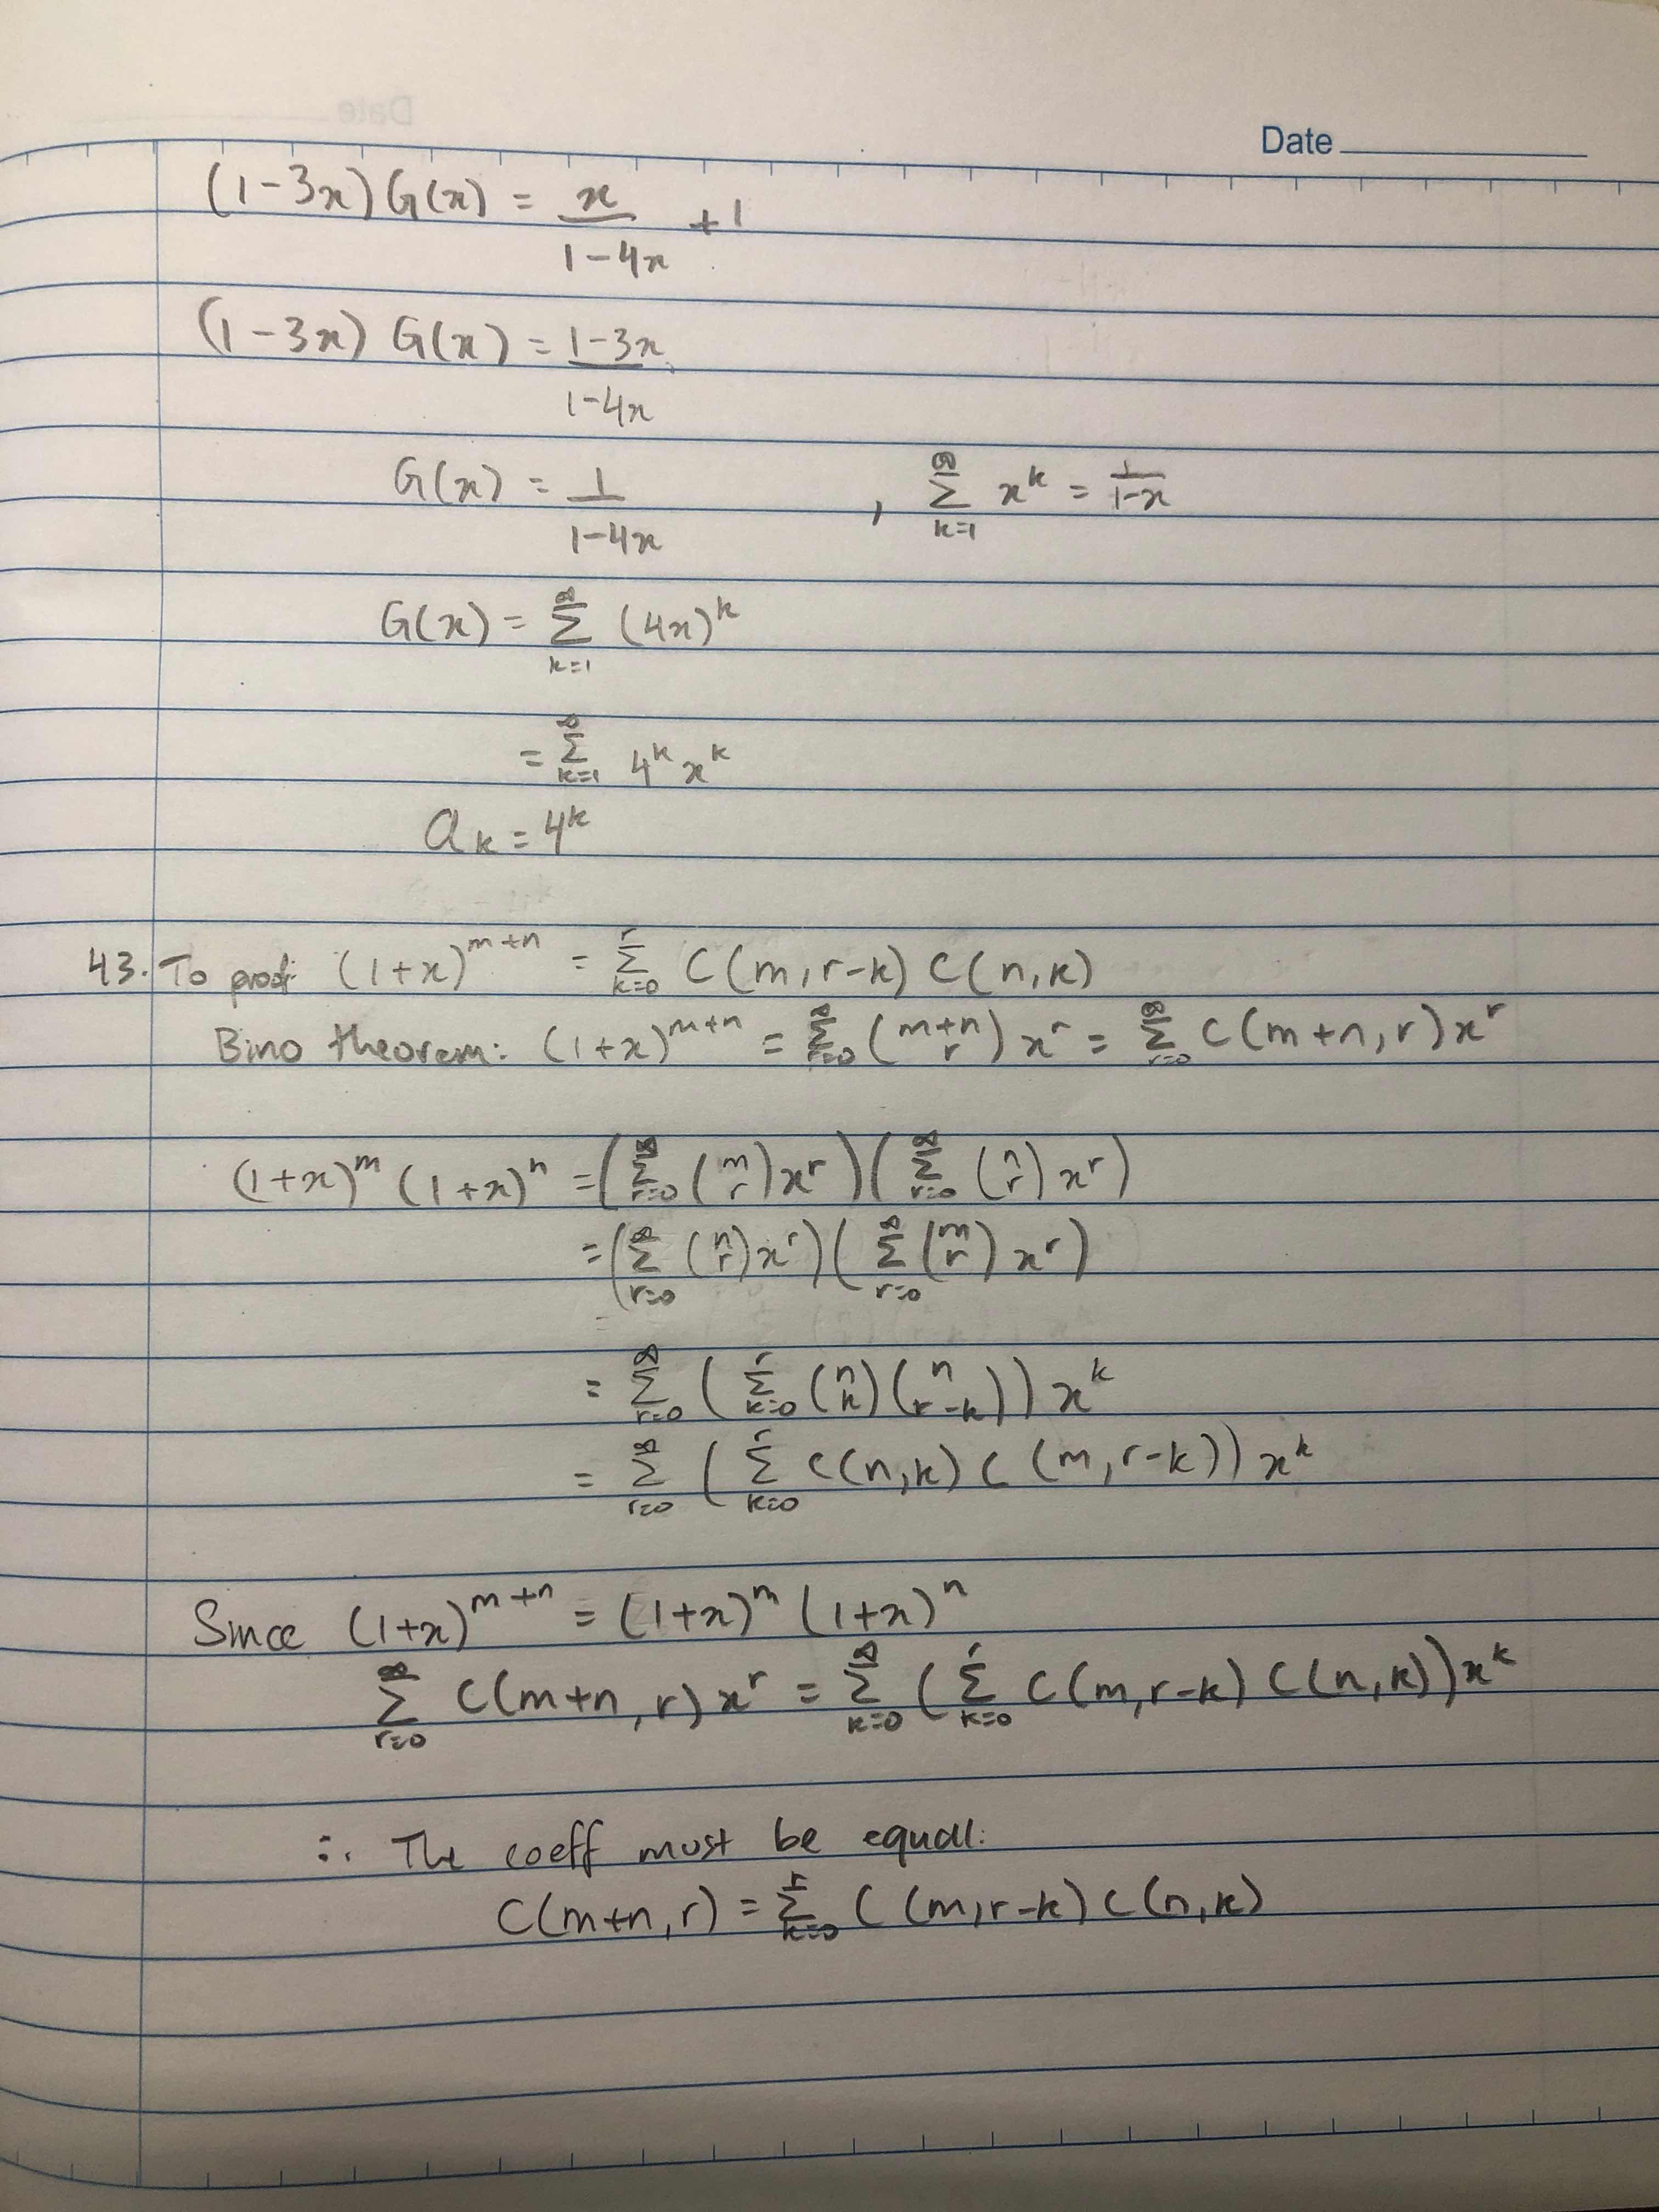 Date
(1-3x) G(x) = x/(1-4x) + 1
(1-3x) G(x) = (1-3x)/(1-4x)
G(x) = 1/(1-4x) , ∞∑k=1 x^k = 1/(1-x)
G(x) = ∞∑k=1 (4x)^k
= ∞∑k=1 4^k x^k
a_k = 4^k
43. To proof: (1+x)^(m+n) = r∑k=0 C(m,r-k) C(n,k)
Bino theorem: (1+x)^(m+n) = ∞∑r=0 (m+n r) x^r = ∞∑r=0 C(m+n,r)x^r
(1+x)^m (1+x)^n = (∞∑r=0 (m r)x^r)(∞∑r=0 (n r) x^r)
= (∞∑r=0 (n r)x^r)(∞∑r=0 (m r) x^r)
= ∞∑r=0 (r∑k=0 (n k)(n r-k)) x^k
= ∞∑r=0 (r∑k=0 C(n,k) C(m,r-k)) x^k
Since (1+x)^(m+n) = (1+x)^m (1+x)^n
∞∑r=0 C(m+n,r) x^r = ∞∑k=0 (r∑k=0 C(m,r-k) C(n,k))x^k
∴ The coeff must be equal:
C(m+n,r) = r∑k=0 C(m,r-k) C(n,k)